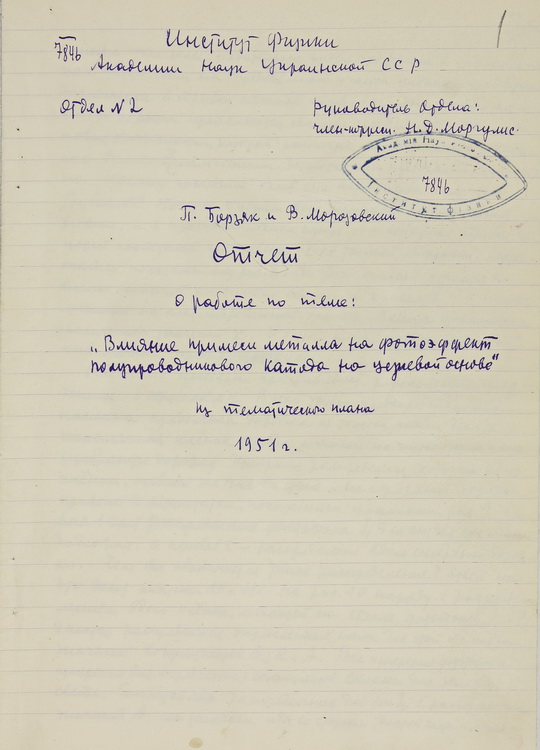 Институт Физики
7846
Академии Наук Украинской ССР
Отдел N 2
Руководитель Отдела:
член-корресп. Н.Д. Моргулис.
Академія Наук
7846
Інститут фізики
П. Борзяк и В. Морозовский
Отчет
о работе по теме:
„Влияние примеси металла на фотоэффект
полупроводникового катода на цезиевой основе“
из тематического плана
1951 г.